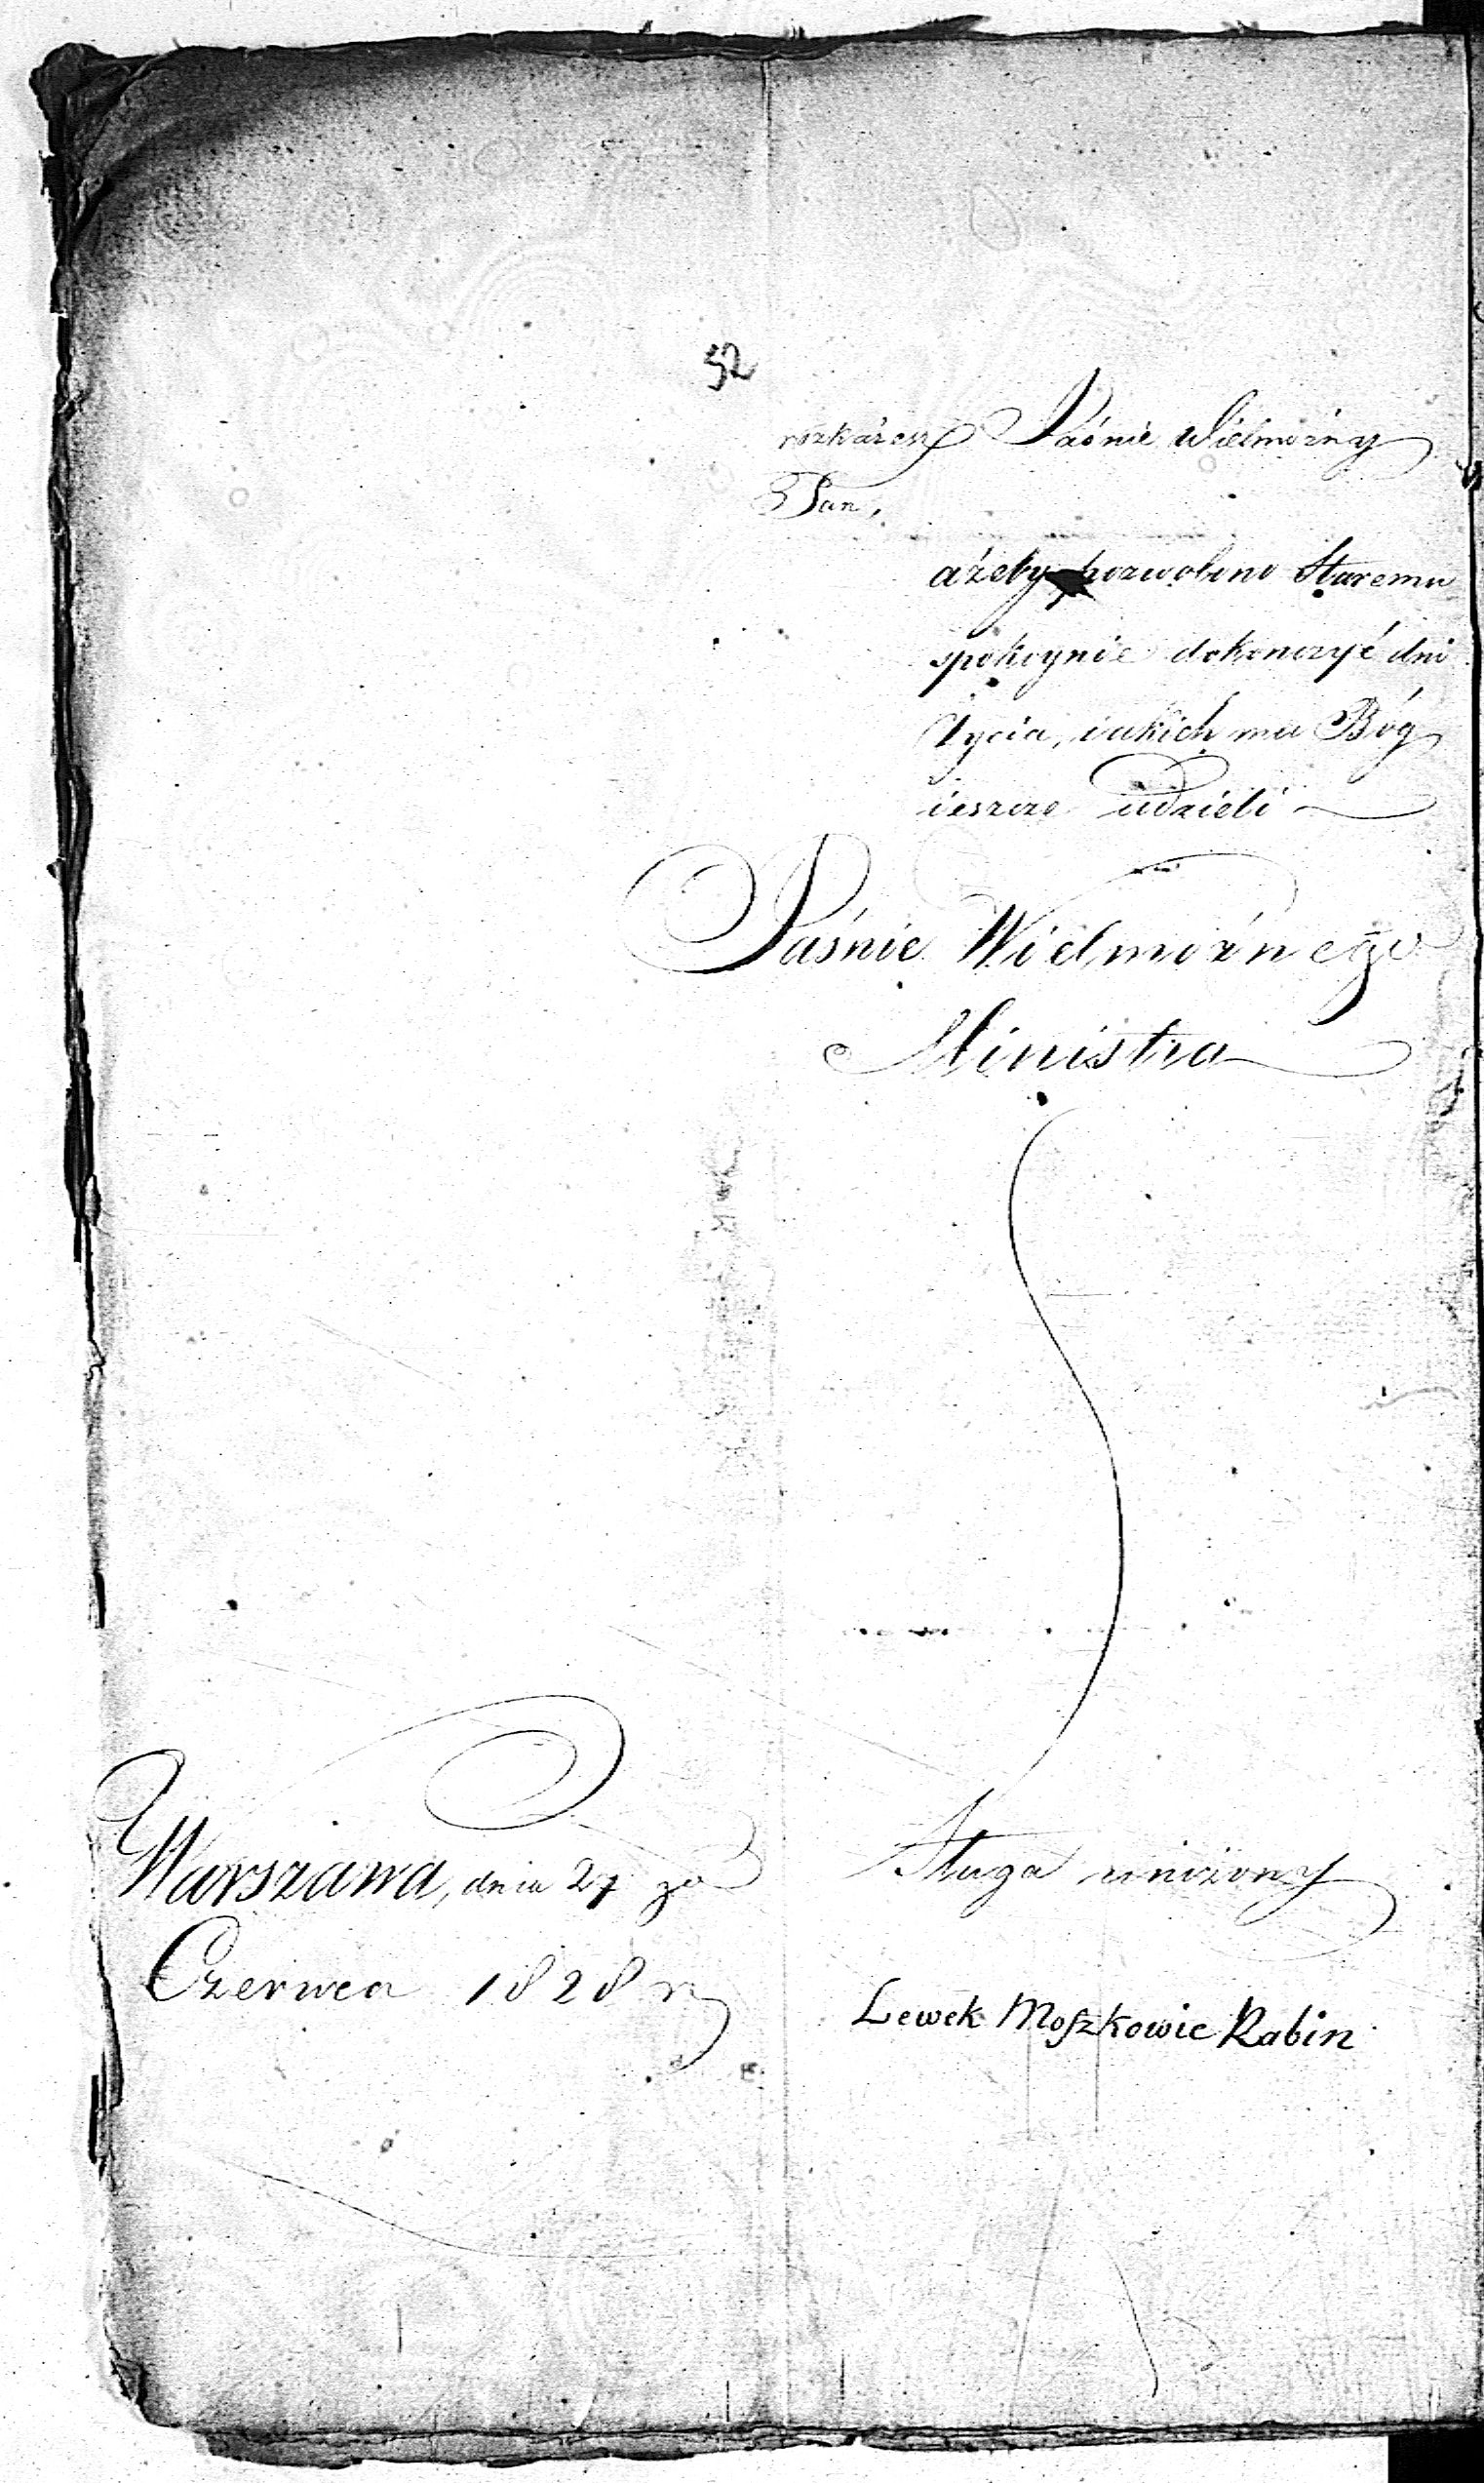 52
rozkażesz Jaśnie Wielmożny
Pan,
ażeby pozwolono Staremu
spokoynie dokonczyć dni
Życia, iakich mu Bóg
ieszcze udzieli
Jaśnie Wielmożnego
Ministra
Sługa uniżony
Warszawa, dnia 27 go
Czerwca 1828 r
Lewek Moszkowic Rabin